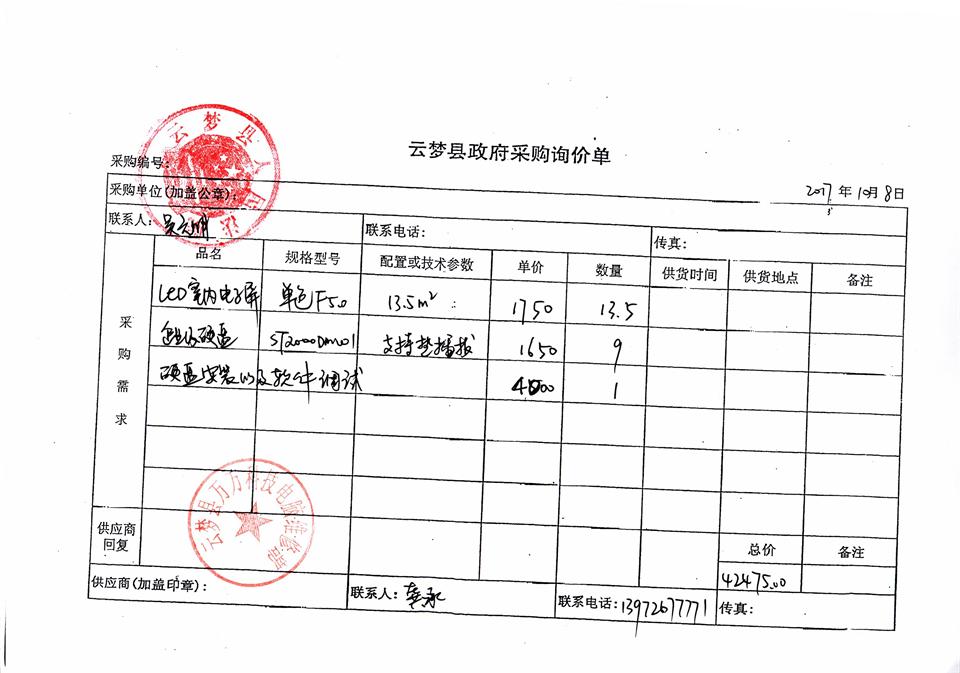 云梦县政府采购询价单
采购编号:
2017 年 10月 8日
采购单位(加盖公章):
云梦县人民法
联系人: 吴 联系电话: 传真:
采购需求
品名 规格型号 配置或技术参数 单价 数量 供货时间 供货地点 备注
LED室内电子屏 单色F5.0 13.5m² 1750 13.5
硬盘 ST2000DM001 支持热插拔 1650 9
硬盘安装以及软件调试 4000 1
云梦县万方科技电脑维修部
供应商回复 总价 备注
42475.00
供应商(加盖印章): 联系人: 联系电话: 13972677771 传真: